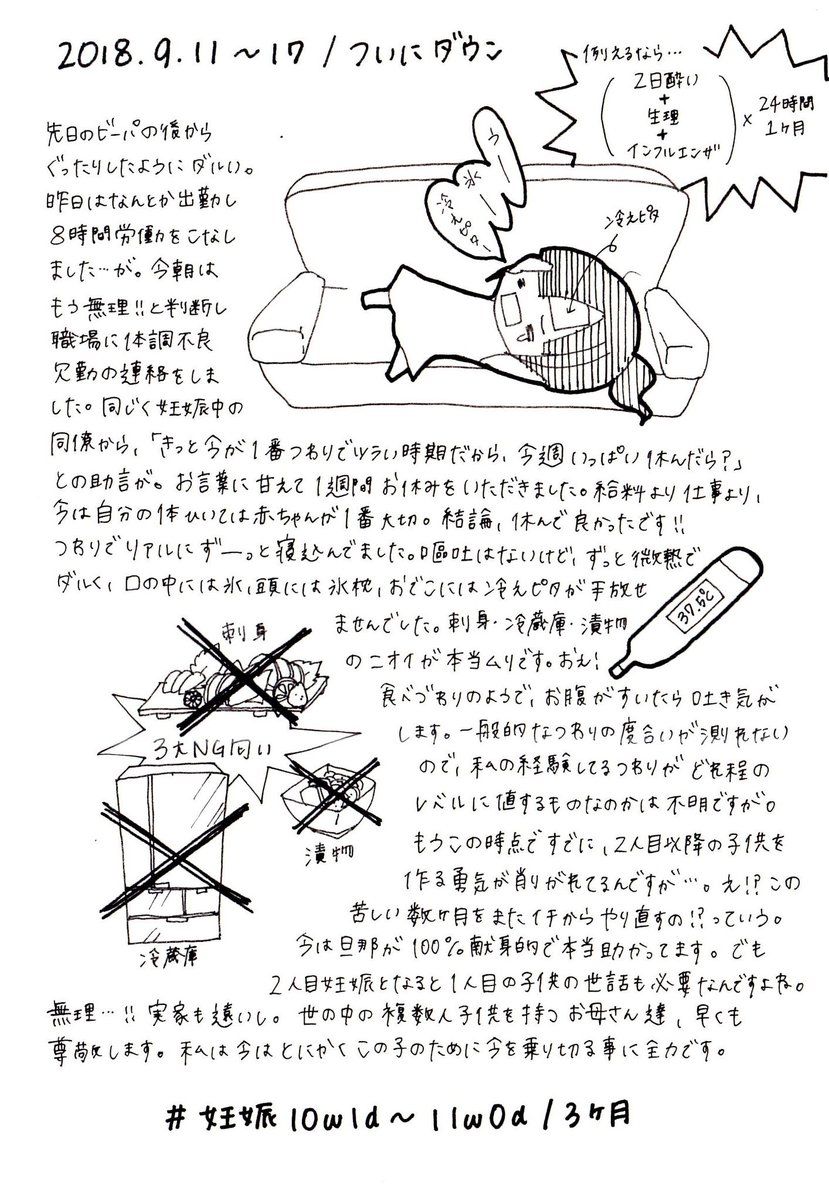 2018.9.11〜17/ついにダウン
例えるなら…
(2日酔い
+
生理
+
インフルエンザ)
×24時間
1ヶ月
先日のビーパの後から
ぐったりしたようにダルい。
昨日はなんとか出勤し
8時間労働をこなし
ました…が。今朝は
もう無理!!と判断し
職場に体調不良
欠勤の連絡をしま
した。同じく妊娠中の
う〜〜
氷〜〜
冷えピタ〜
冷えピタ
同僚から、「きっと今が1番つわりでツラい時期だから、今週いっぱい休んだら?」
との助言が。お言葉に甘えて1週間お休みをいただきました。給料より仕事より、
今は自分の体ひいては赤ちゃんが1番大切。結論、休んで良かったです!!
つわりでリアルにずーっと寝込んでました。嘔吐はないけど、ずっと微熱で
ダルく、口の中には氷、頭には氷枕、おでこには冷えピタが手放せ
ませんでした。刺身・冷蔵庫・漬物
のニオイが本当ムリです。おえ!
37.5℃
刺身
3大NG匂い
漬物
冷蔵庫
食べづわりのようで、お腹がすいたら吐き気が
します。一般的なつわりの度合いが測れない
ので、私の経験してるつわりがどれ程の
レベルに値するものなのかは不明ですが。
もうこの時点ですでに、2人目以降の子供を
作る勇気が削りがれてるんですが…。え!?この
苦しい数ヶ月をまたイチからやり直すの!?っていう。
今は旦那が100%献身的で本当助かってます。でも
2人目妊娠となると1人目の子供の世話も必要なんですよね。
無理…!!実家も遠いし。世の中の複数人子供を持つお母さん達、早くも
尊敬します。私は今はとにかくこの子のために今を乗り切る事に全力です。
#妊娠10w1d〜11w0d/3ヶ月